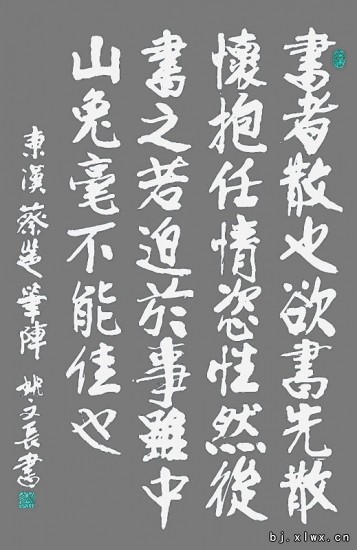 書者散也欲書先散
懷抱任情恣性然後
書之若迫於事雖中
山兔毫不能佳也
東漢蔡邕筆陣 姚文長書
bj.xlwx.cn